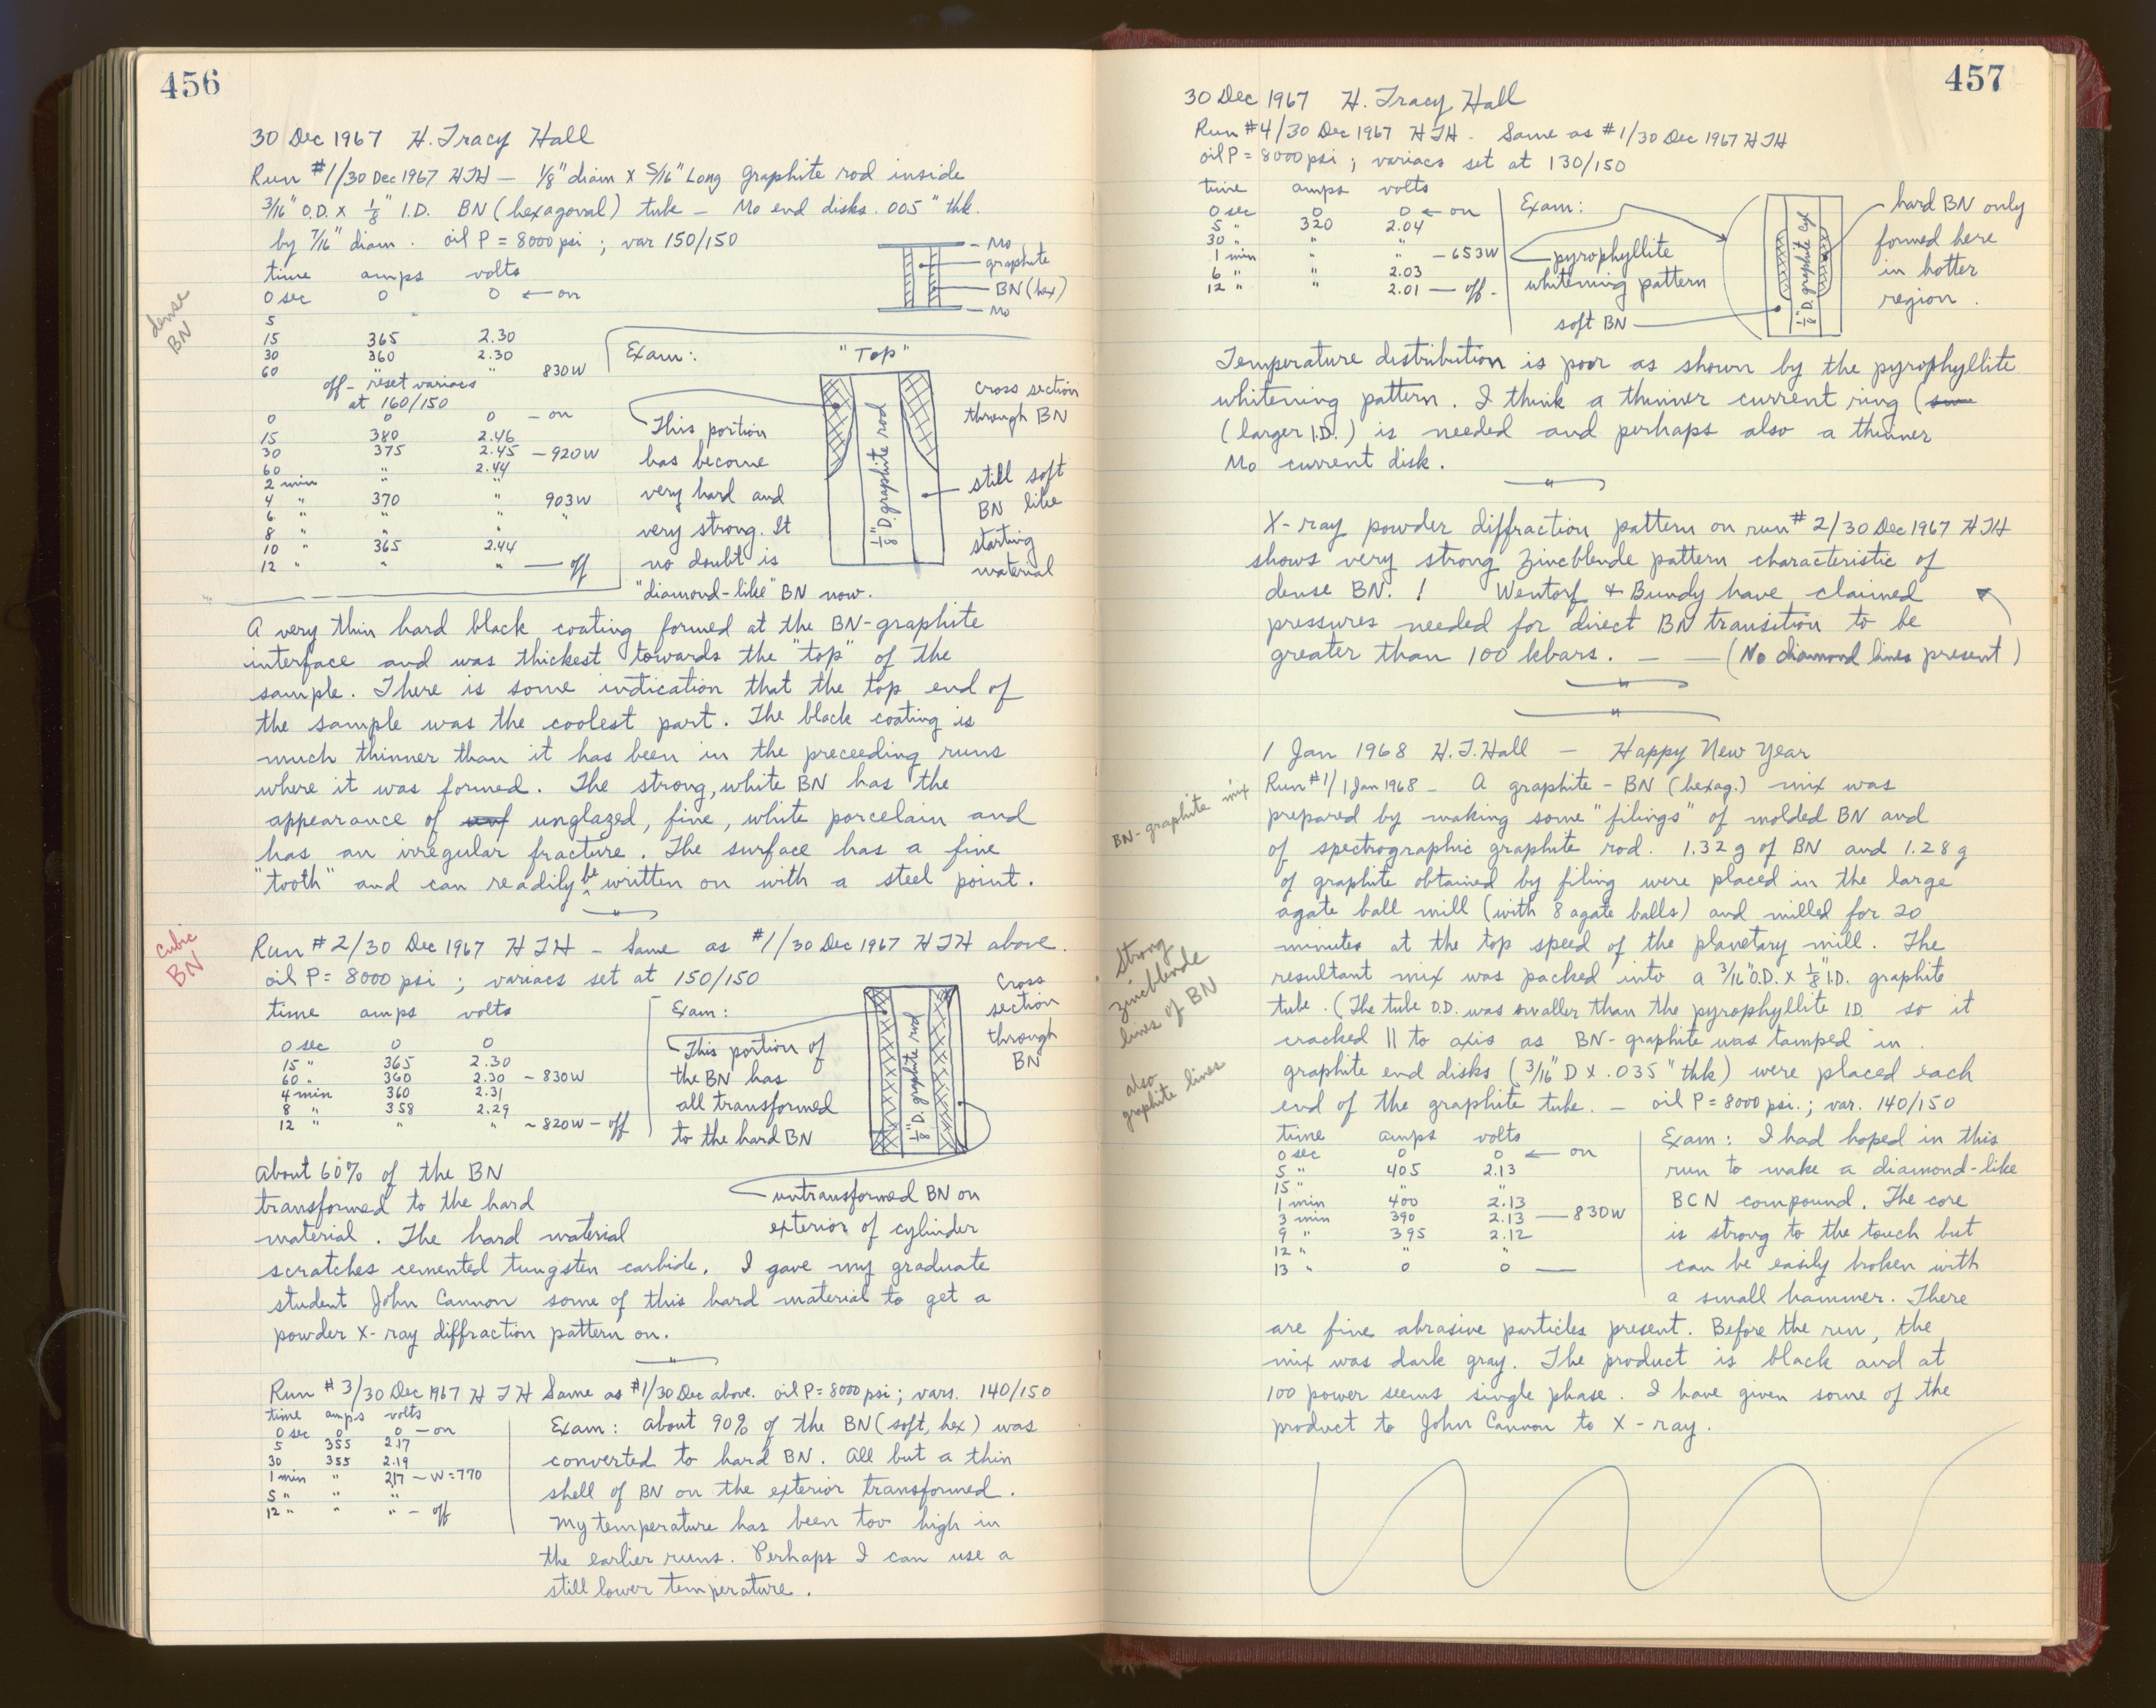 456
30 Dec 1967 H. Tracy Hall
Run #1/30 Dec 1967 HTH — 1/8" diam x 5/16" Long graphite rod inside
3/16" O.D. x 1/8" I.D. BN (hexagonal) tube — Mo end disks .005" thk.
by 7/16" diam. oil P = 8000 psi ; var 150/150
Mo
graphite
BN (hex)
Mo
dense
BN
time amps volts
0 sec 0 0 ← on
5
15 365 2.30
30 360 2.30
60 " " 830W
off - reset variacs
at 160/150
0 0 0 - on
15 380 2.46
30 375 2.45 - 920W
60 " 2.44
2 min " "
4 " 370 " 903W
6 " " " "
8 " " "
10 " 365 2.44
12 " " " — off
Exam: "Top"
1/8" D. graphite rod
Cross section
through BN
This portion
has become
very hard and
very strong. It
no doubt is
"diamond-like" BN now.
still soft
BN like
starting
material
A very thin hard black coating formed at the BN-graphite
interface and was thickest towards the "top" of the
sample. There is some indication that the top end of
the sample was the coolest part. The black coating is
much thinner than it has been in the preceeding runs
where it was formed. The strong, white BN has the
appearance of unglazed, fine, white porcelain and
has an irregular fracture. The surface has a fine
"tooth" and can readily be written on with a steel point.
cubic
BN
Run #2/30 Dec 1967 HTH — Same as #1/30 Dec 1967 HTH above.
oil P = 8000 psi ; variacs set at 150/150
time amps volts
0 sec 0 0
15 " 365 2.30
60 " 360 2.30 ~ 830W
4 min 360 2.31
8 " 358 2.29
12 " " " ~820W - off
Exam:
This portion of
the BN has
all transformed
to the hard BN
1/8" D. graphite rod
Cross
section
through
BN
untransformed BN on
exterior of cylinder
About 60% of the BN
transformed to the hard
material. The hard material
scratches cemented tungsten carbide. I gave my graduate
student John Cannon some of this hard material to get a
powder X-ray diffraction pattern on.
Run #3/30 Dec 1967 HTH Same as #1/30 Dec above. oil P = 8000 psi ; vars. 140/150
time amps volts
0 sec 0 0 - on
5 355 2.17
30 355 2.19
1 min " 2.17 ~ W = 770
5 " " "
12 " " " - off
Exam: About 90% of the BN (soft, hex) was
converted to hard BN. All but a thin
shell of BN on the exterior transformed.
My temperature has been too high in
the earlier runs. Perhaps I can use a
still lower temperature.
457
30 Dec 1967 H. Tracy Hall
Run #4/30 Dec 1967 HTH. Same as #1/30 Dec 1967 HTH
oil P = 8000 psi ; variacs set at 130/150
time amps volts
0 sec 0 0 ← on
5 " 320 2.04
30 " " "
1 min " " — 653W
6 " " 2.03
12 " " 2.01 — off -
Exam:
pyrophyllite
whitening pattern
soft BN
1/8" D. graphite cyl
hard BN only
formed here
in hotter
region.
Temperature distribution is poor as shown by the pyrophyllite
whitening pattern. I think a thinner current ring (
(larger I.D.) is needed and perhaps also a thinner
Mo current disk.
X-ray powder diffraction pattern on run #2/30 Dec 1967 HTH
shows very strong zincblende pattern characteristic of
dense BN. ! Wentorf & Bundy have claimed
pressures needed for direct BN transition to be
greater than 100 kbars. — — (No diamond lines present)
1 Jan 1968 H.T. Hall — Happy New Year
BN-graphite mix
Run #1/1 Jan 1968 — A graphite - BN (hexag.) mix was
prepared by making some "filings" of molded BN and
of spectrographic graphite rod. 1.32 g of BN and 1.28 g
of graphite obtained by filing were placed in the large
agate ball mill (with 8 agate balls) and milled for 20
minutes at the top speed of the planetary mill. The
resultant mix was packed into a 3/16" O.D. x 1/8" I.D. graphite
tube. (The tube O.D. was smaller than the pyrophyllite I.D. so it
cracked || to axis as BN-graphite was tamped in.
graphite end disks (3/16" D x .035" thk) were placed each
end of the graphite tube. — oil P = 8000 psi. ; var. 140/150
strong
zincblende
lines of BN
also
graphite lines
time amps volts
0 sec 0 0 ← on
5 " 405 2.13
15 " " "
1 min 400 2.13
3 min 390 2.13 — 830W
9 " 395 2.12
12 " " "
13 " 0 0 —
Exam: I had hoped in this
run to make a diamond-like
BCN compound. The core
is strong to the touch but
can be easily broken with
a small hammer. There
are fine abrasive particles present. Before the run, the
mix was dark gray. The product is black and at
100 power seems single phase. I have given some of the
product to John Cannon to X-ray.